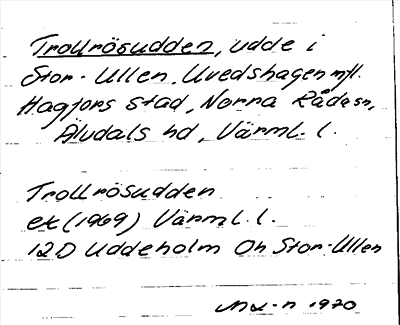 Trollrösudden, udde i
Stor-Ullen, Uvedshagen mfl.
Hagfors stad, Norra Råda sn,
Älvdals hd, Värml. l.
Trollrösudden
ek (1969) Värml. l.
12D Uddeholm Oh Stor-Ullen
1970